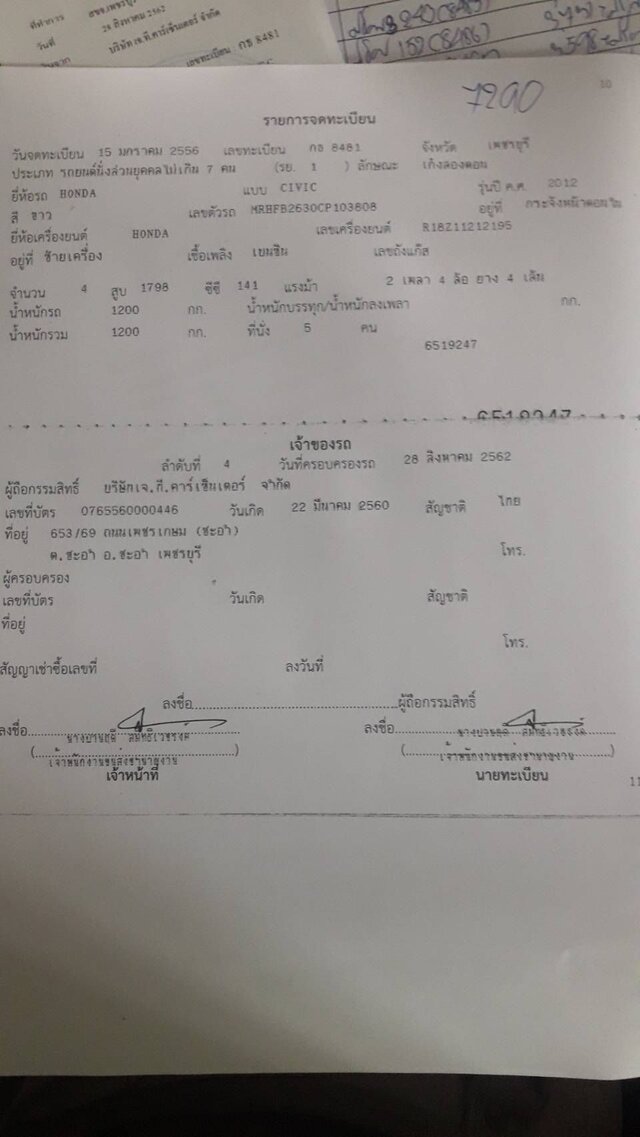 ที่ทำการ
วันที่ 28 สิงหาคม 2562
บริษัท เจ.ที.คาร์เซ็นเตอร์ จำกัด
เลขทะเบียน : กธ 8481
7290
10
รายการจดทะเบียน
วันจดทะเบียน 15 มกราคม 2556 เลขทะเบียน กธ 8481 จังหวัด เพชรบุรี
ประเภท รถยนต์นั่งส่วนบุคคลไม่เกิน 7 คน (รย. 1 ) ลักษณะ เก๋งสองตอน
ยี่ห้อรถ HONDA แบบ CIVIC รุ่นปี ค.ศ. 2012
สี ขาว เลขตัวรถ MRHFB2630CP103808 อยู่ที่ กระจังหน้าตอนใน
ยี่ห้อเครื่องยนต์ HONDA เลขเครื่องยนต์ R18Z11212195
อยู่ที่ ซ้ายเครื่อง เชื้อเพลิง เบนซิน เลขถังแก๊ส
จำนวน 4 สูบ 1798 ซีซี 141 แรงม้า 2 เพลา 4 ล้อ ยาง 4 เส้น
น้ำหนักรถ 1200 กก. น้ำหนักบรรทุก/น้ำหนักลงเพลา กก.
น้ำหนักรวม 1200 กก. ที่นั่ง 5 คน
6519247
6519247
เจ้าของรถ
ลำดับที่ 4 วันที่ครอบครองรถ 28 สิงหาคม 2562
ผู้ถือกรรมสิทธิ์ บริษัทเจ.ที.คาร์เซ็นเตอร์ จำกัด
เลขที่บัตร 0765560000446 วันเกิด 22 มีนาคม 2560 สัญชาติ ไทย
ที่อยู่ 653/69 ถนนเพชรเกษม (ชะอำ)
ต.ชะอำ อ.ชะอำ เพชรบุรี โทร.
ผู้ครอบครอง
เลขที่บัตร วันเกิด สัญชาติ
ที่อยู่
โทร.
สัญญาเช่าซื้อเลขที่ ลงวันที่
ลงชื่อ ผู้ถือกรรมสิทธิ์
ลงชื่อ ลงชื่อ
เจ้าพนักงานขนส่งชำนาญงาน เจ้าพนักงานขนส่งชำนาญงาน
เจ้าหน้าที่ นายทะเบียน
11